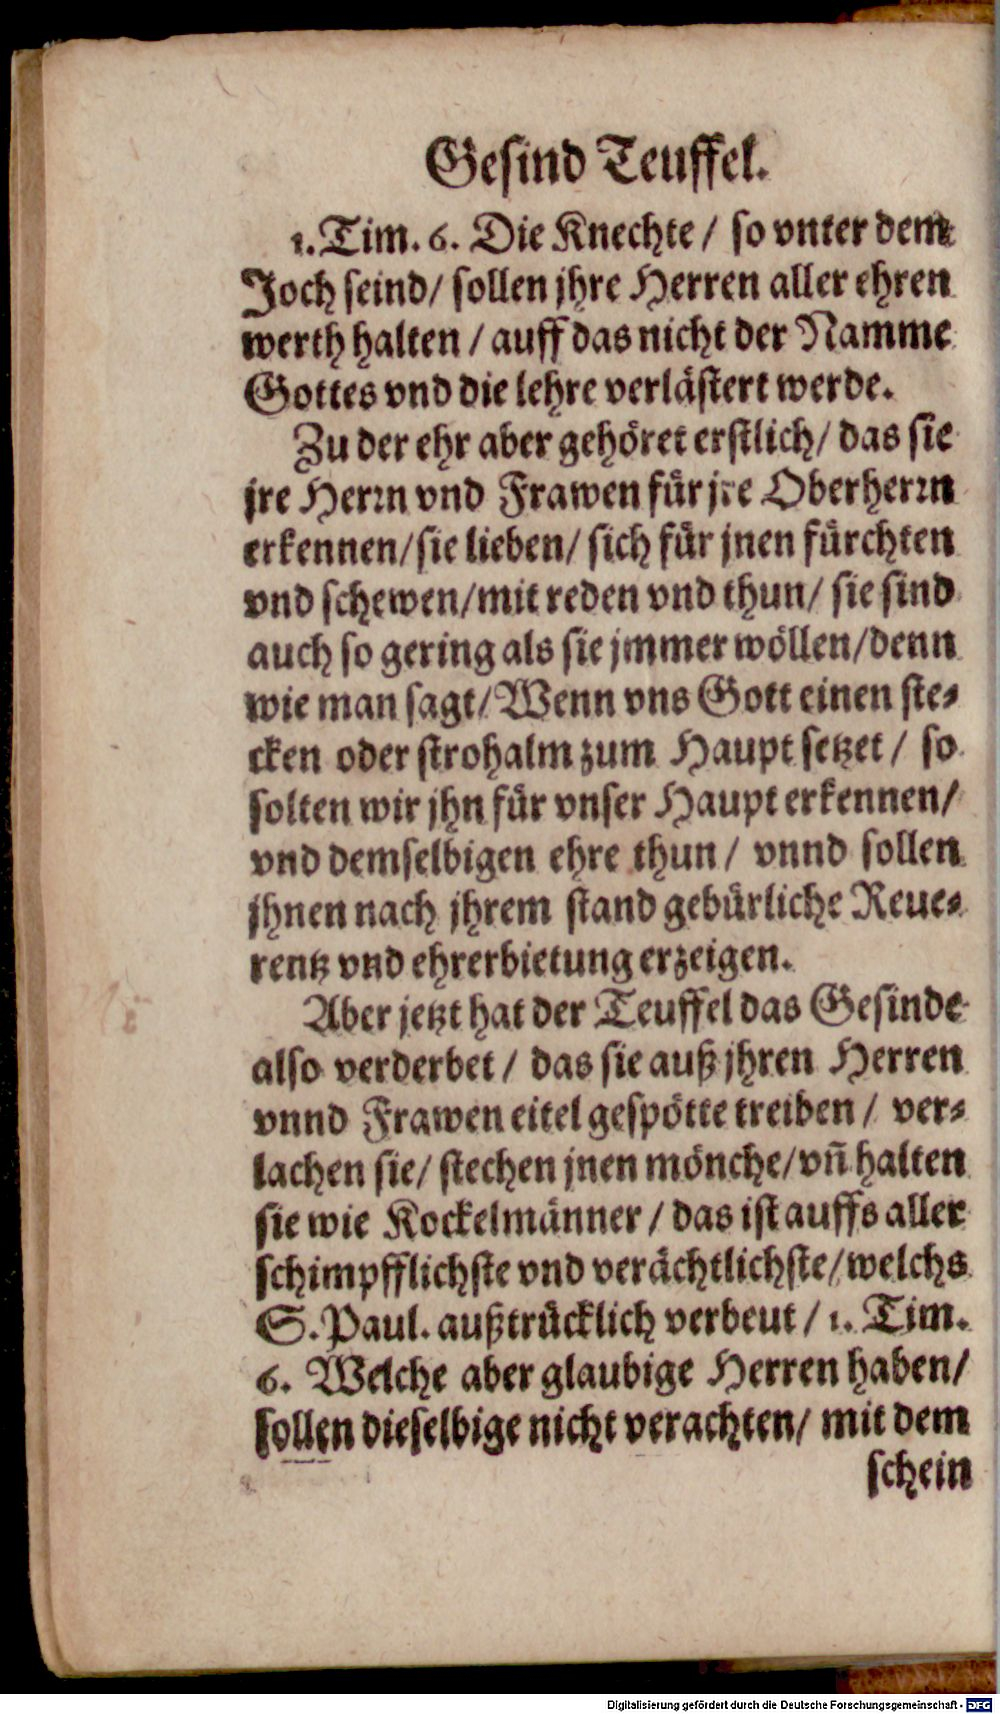 Gesind Teuffel.
1. Tim. 6. Die Knechte / so vnter dem
Joch seind/ sollen jhre Herren aller ehren
werth halten / auff das nicht der Namme
Gottes vnd die lehre verlästert werde.
Zu der ehr aber gehöret erstlich/ das sie
jre Herrn vnd Frawen für jre Oberherrn
erkennen/sie lieben/ sich für jnen fürchten
vnd schewen/mit reden vnd thun/ sie sind
auch so gering als sie jmmer wöllen/denn
wie man sagt/ Wenn vns Gott einen ste-
cken oder strohalm zum Haupt setzet / so
solten wir jhn für vnser Haupt erkennen/
vnd demselbigen ehre thun / vnnd sollen
jhnen nach jhrem stand gebürliche Reue-
rentz vnd ehrerbietung erzeigen.
Aber jetzt hat der Teuffel das Gesinde
also verderbet / das sie auß jhren Herren
vnnd Frawen eitel gespötte treiben / ver-
lachen sie/ stechen jnen mönche/vñ halten
sie wie Kockelmänner / das ist auffs aller
schimpfflichste vnd verächtlichste/welchs
S. Paul. außtrücklich verbeut / 1. Tim.
6. Welche aber glaubige Herren haben/
sollen dieselbige nicht verachten/ mit dem
schein
Digitalisierung gefördert durch die Deutsche Forschungsgemeinschaft - DFG